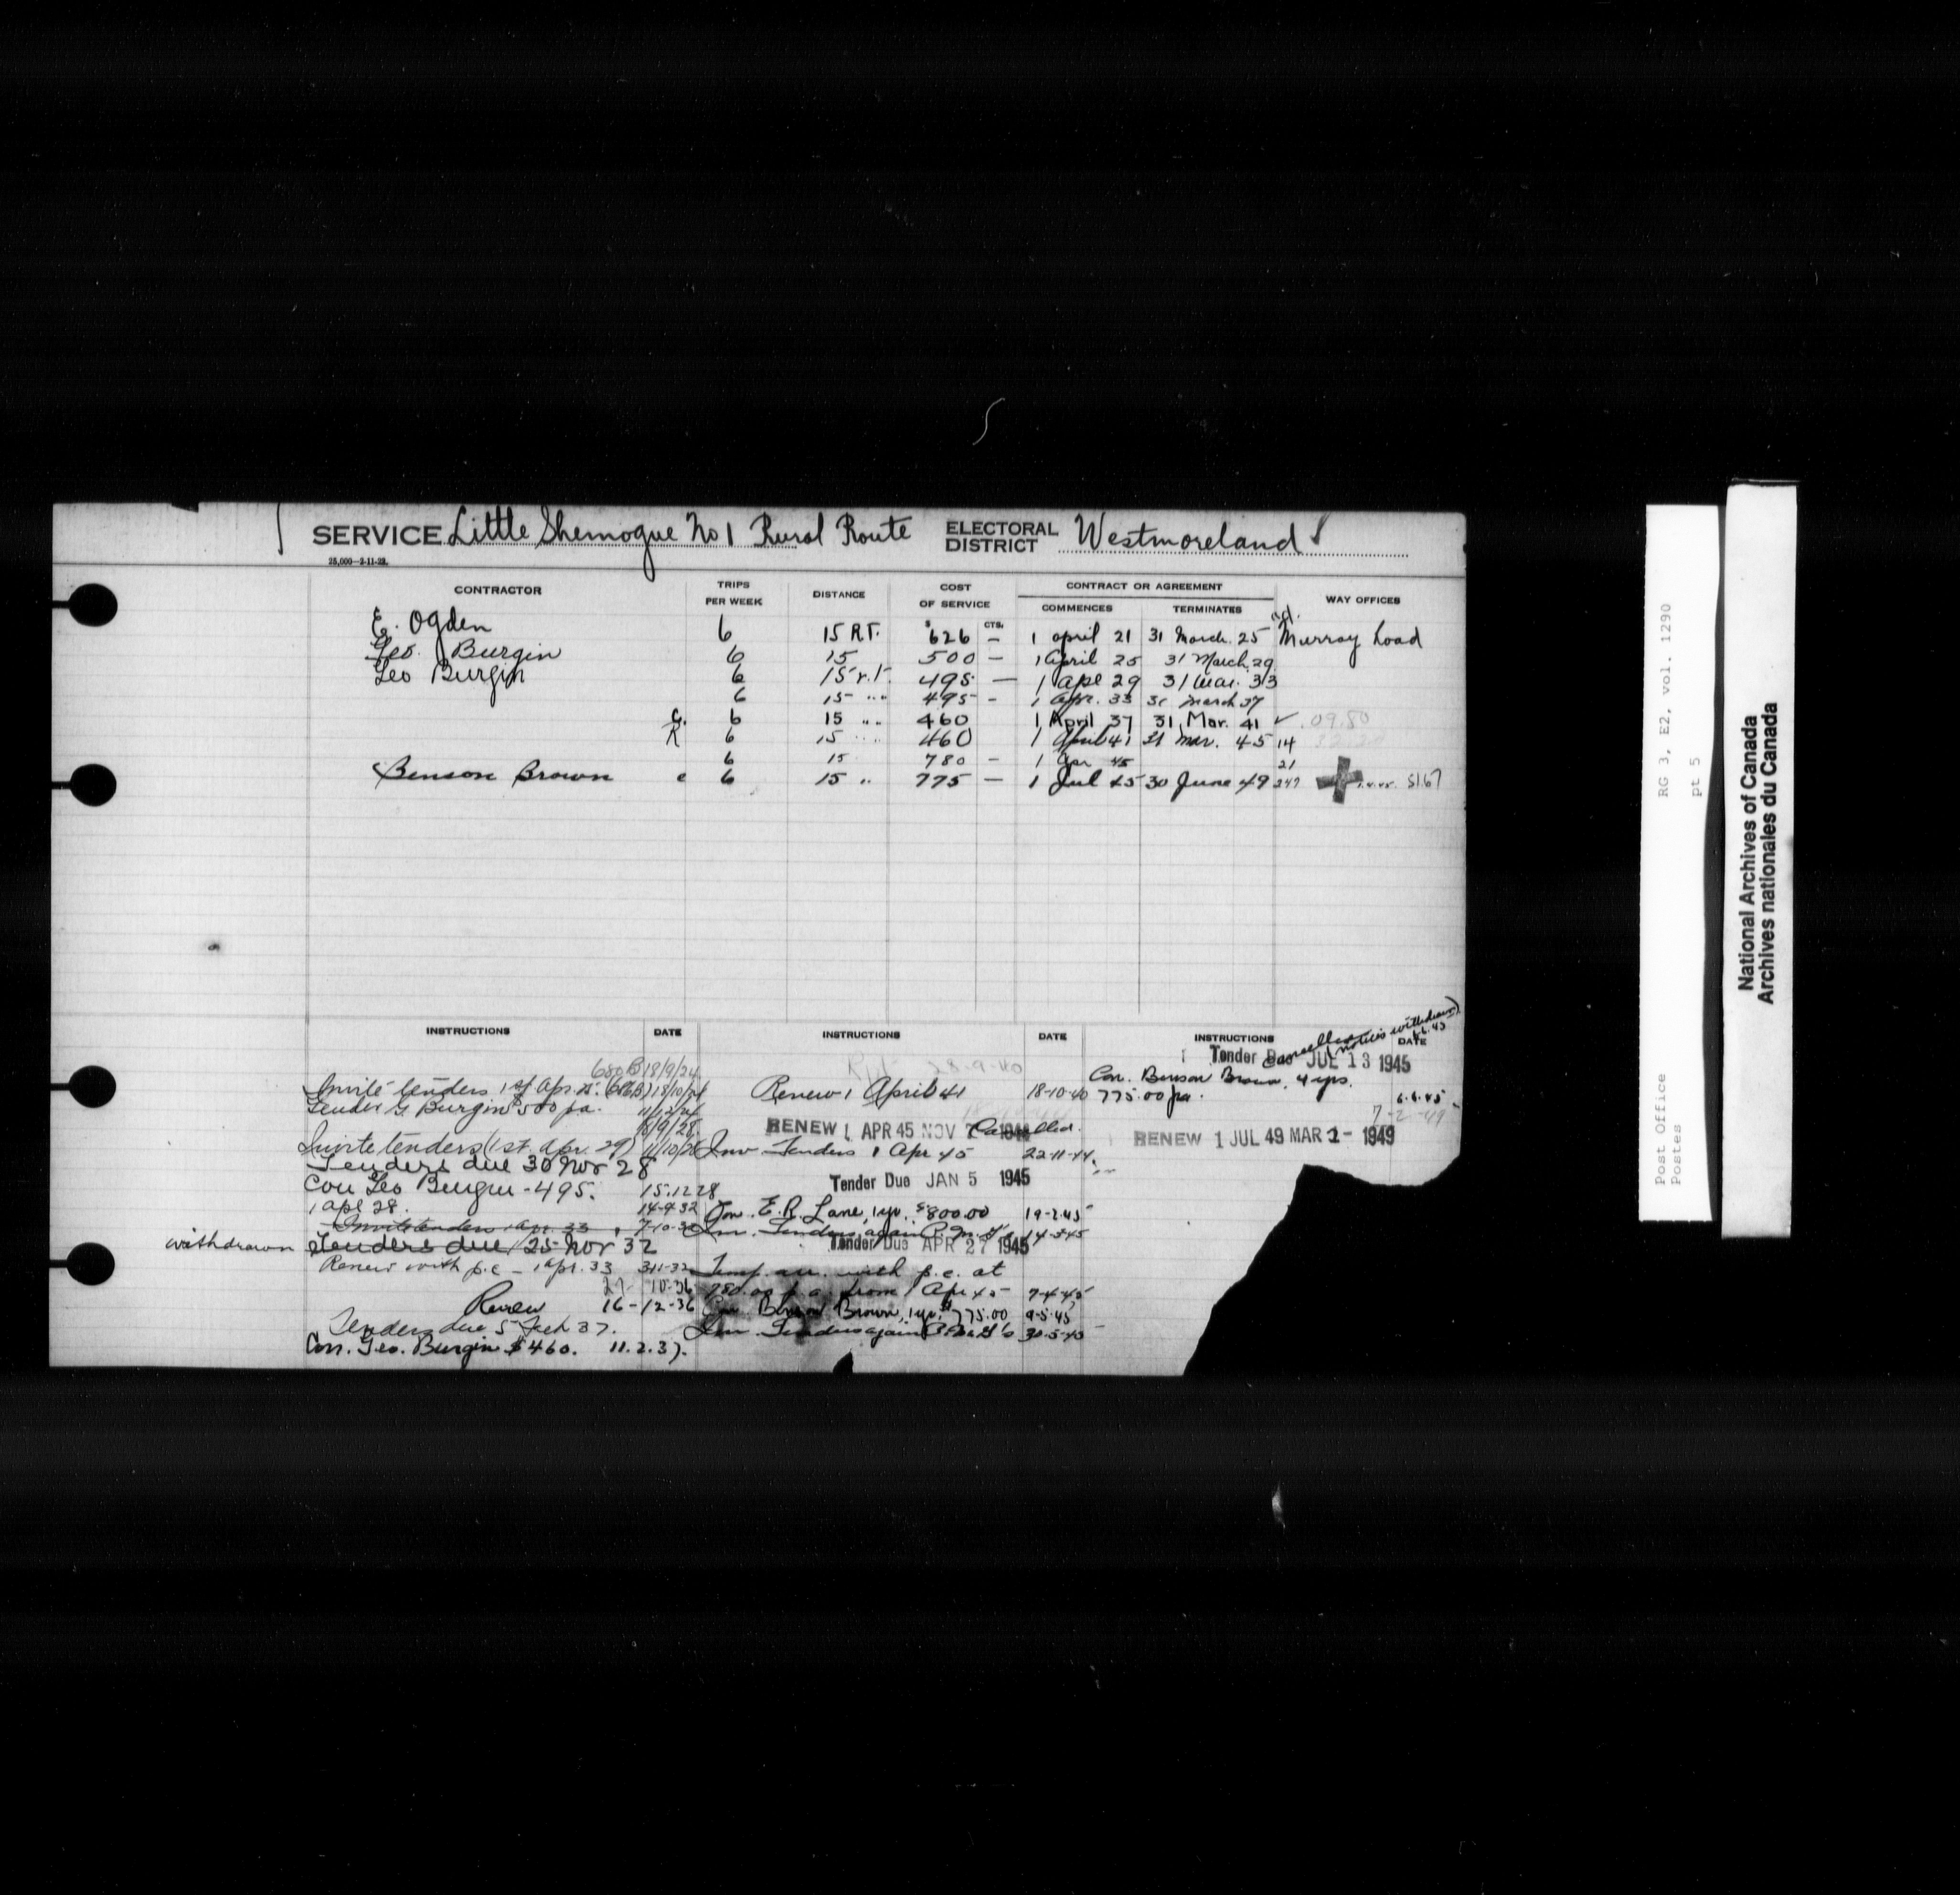 SERVICE Little Shemogue No 1 Rural Route ELECTORAL DISTRICT Westmoreland
25,000—2-11-22.
CONTRACTOR TRIPS PER WEEK DISTANCE COST OF SERVICE CONTRACT OR AGREEMENT WAY OFFICES
COMMENCES TERMINATES
$ CTS.
E. Ogden 6 15 R.T. 626 — 1 april 21 31 March 25 Murray Load
Geo. Burgin 6 15 500 — 1 April 25 31 March 29
Geo Burgin 6 15 r.t. 495 — 1 Apl 29 31 Mar. 33
6 15 " " 495 - 1 Apr. 33 31 March 37
C. 6 15 " " 460 1 April 37 31 Mar. 41 ✓
R 6 15 " " 460 1 April 41 31 Mar. 45 14
6 15 780 — 1 Apr 45 21
Benson Brown c 6 15 " 775 — 1 Jul 45 30 June 49 247 5167
INSTRUCTIONS DATE
680B 18/9/24
Invite tenders 1st Apr. 25. 18/10/24
Tender G. Burgin $500 pa. 11/12/24
18/9/28
Invite tenders (1st. Apr. 29) 1/10/28
Tenders due 30 Nov 28
Con Geo Burgin - 495. 15.12.28
1 apl 28. 14-9-32
Invite tenders 1 apr. 33 7-10-32
withdrawn Tenders due 25 Nov 32
Renew with p.c — 1 Apr. 33 3-11-32
27-10-36
Renew 16-12-36
Tenders due 5 Feb 37.
Con. Geo. Burgin $460. 11.2.37.
INSTRUCTIONS DATE
28-9-40
Renew 1 April 41 18-10-40
RENEW 1 APR 45 NOV Cancelled.
Inv Tenders 1 Apr 45 22-11-44
Tender Due JAN 5 1945
Con. E.R. Lane, 1 yr. $800.00 19-2-45
Inv. Tenders again P.M.G's 14-3-45
Tender Due APR 27 1945
Temp. arr. with p.c. at
780.00 p.a. from 1 Apr 45 - 7-4-45
Con. Benson Brown, 1 yr. $775.00 9-5-45
Inv. Tenders again P.M.G's 30-5-45
INSTRUCTIONS DATE
Cancelled (notices withdrawn) 6.6.45
Tender Due JUL 13 1945
Con. Benson Brown, 4 yrs.
775.00 pa. 6.6.45
7-2-49
RENEW 1 JUL 49 MAR 2- 1949
RG 3, E2, vol. 1290
pt 5
Post Office
Postes
National Archives of Canada
Archives nationales du Canada